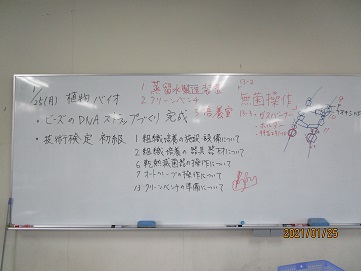 1/25(月) 植物バイオ
・ビーズのDNAストラップづくり 完成
・技術検定 初級
1 蒸留水製造室
2 クリーンベンチ
3 培養室
1 組織培養の施設設備について
2 組織培養の器具器材について
6 乾熱滅菌器の操作について
7 オートクレーブの操作について
13 クリーンベンチの準備について
13-2
無菌操作
13-3 ガスバーナー
2021/01/25